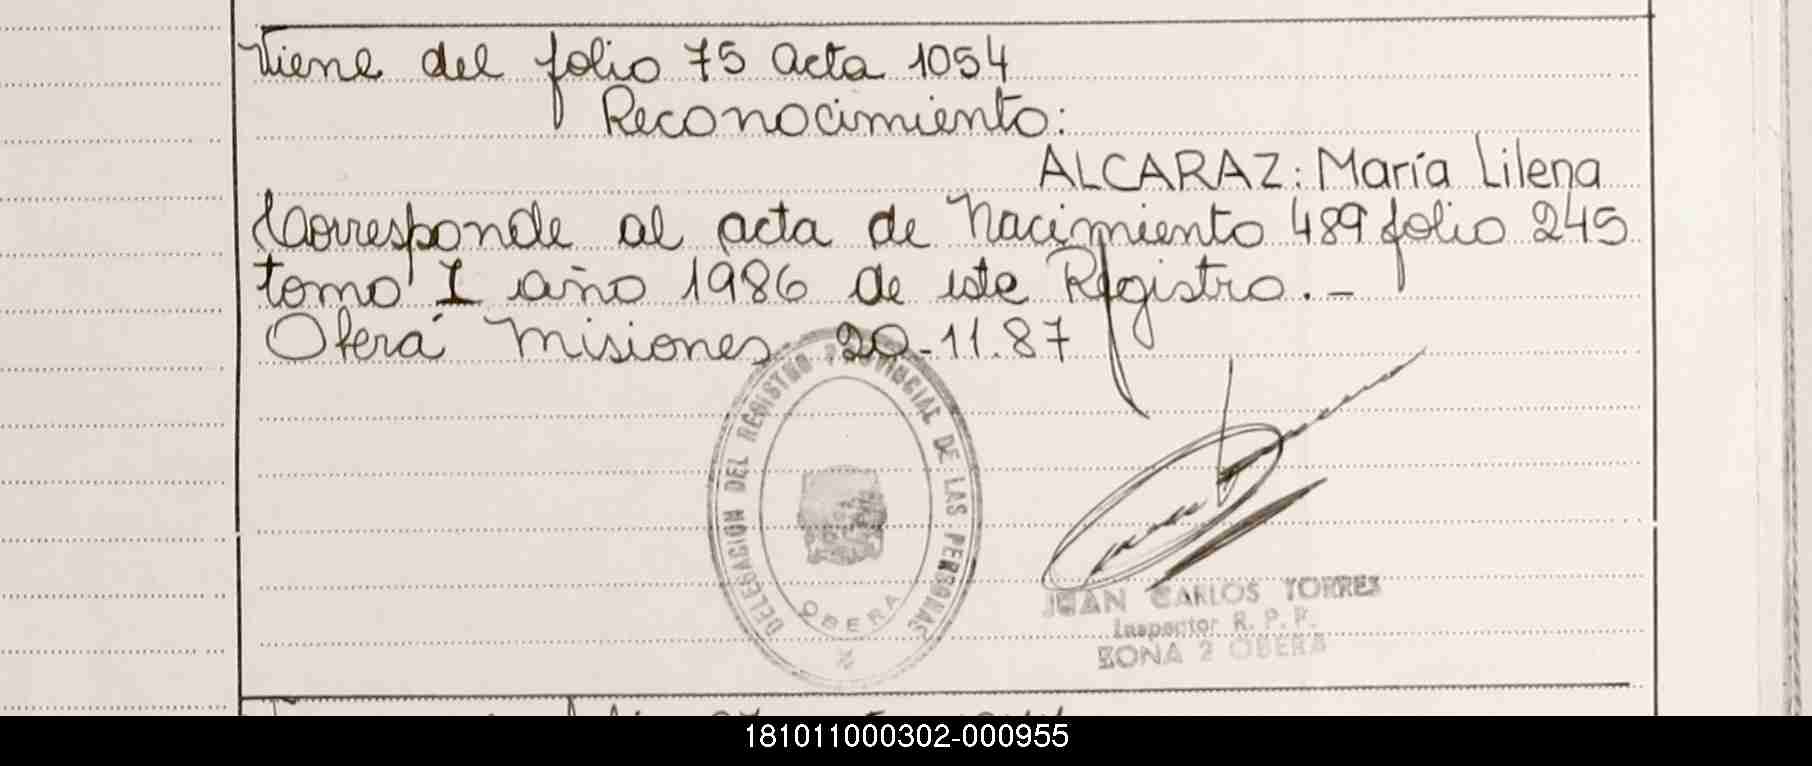 Viene del folio 75 acta 1054
Reconocimiento:
ALCARAZ: María Lilena
Corresponde al acta de Nacimiento 489 folio 245
tomo I año 1986 de este Registro.-
Oberá Misiones 20-11.87
DELEGACION DEL REGISTRO PROVINCIAL DE LAS PERSONAS
OBERA
JUAN CARLOS TORRES
Inspector R. P. P.
ZONA 2 OBERA
181011000302-000955